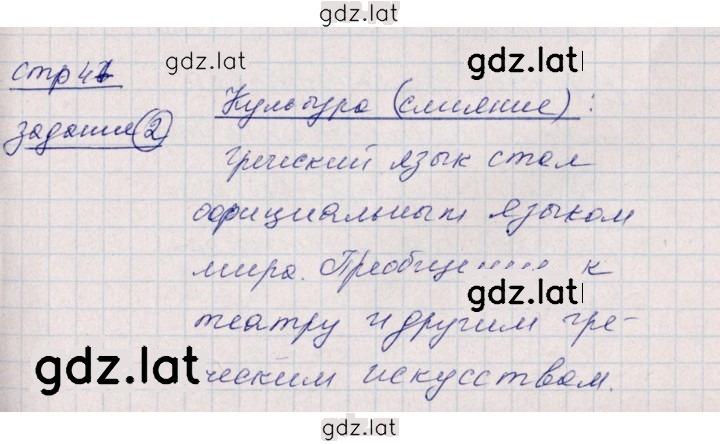 gdz.lat
gdz.lat
gdz.lat
стр 41
задание 2
Культура (слияние):
греческий язык стал
официальным языком
мира. к
gdz.lat
театру и другим гре-
gdz.lat
ческим искусством.
gdz.lat